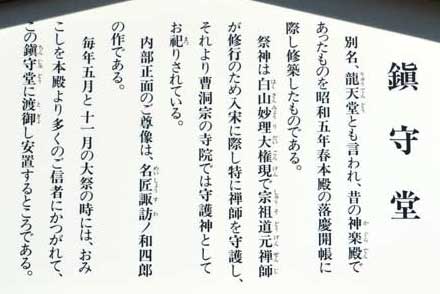 鎭守堂
別名、龍天堂とも言われ、昔の神楽殿で
あったものを昭和五年春本殿の落慶開帳に
際し修築したものである。
祭神は白山妙理大権現で宗祖道元禅師
が修行のため入宋に際し特に禅師を守護し、
それより曹洞宗の寺院では守護神として
お祀りされている。
内部正面のご尊像は、名匠諏訪ノ和四郎
の作である。
毎年五月と十一月の大祭の時には、おみ
こしを本殿より多くのご信者にかつがれて、
この鎭守堂に渡御し安置するところである。